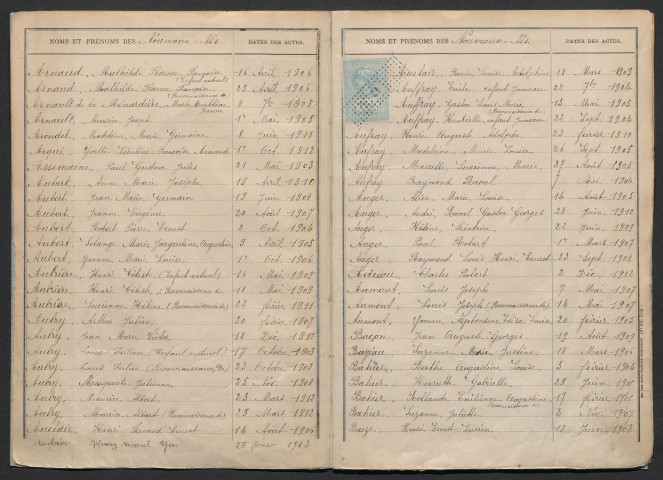 NOMS ET PRÉNOMS DES Nouveaux-Nés DATES DES ACTES.
Arnaud, Mathilde France Françoise (Enfant naturel) 16 Avril 1906
Arnaud, Mathilde France Françoise (Reconnaissance de) 23 Avril 1906
Arnault de la Ménardière, Marie 8 7bre 1907
Arnault, Maurice Joseph 1er Mai 1905
Arondel, Madeleine Marie Germaine 8 Juin 1911
Arqué, Yvette Léontine Françoise Armande 1er Oct 1912
Assemaine, Paul Gustave Jules 21 Mai 1903
Aubert, Anne Marie Josèphe 15 Avril 1910
Aubert, Jean Marie Germain 13 Juin 1908
Aubert, Jeanne Eugénie 20 Août 1907
Aubert, Robert Pierre Ernest 2 Oct 1904
Aubert, Solange Marie Jacqueline Augustine 9 Avril 1905
Aubert, Yvonne Marie Louise 1er Oct 1906
Aubrière, Henri (Enfant naturel) 16 Mai 1903
Aubrière, Henri (Reconnaissance de) 18 Mai 1903
Aubrière, Lucienne Hélène (Reconnaissance de) 22 février 1911
Aubry, Arthur Julien 20 février 1907
Aubry, Jean Marie Victor 18 Déc 1912
Aubry, Louis (Enfant naturel) 17 Octobre 1903
Aubry, Louis (Reconnaissance de) 23 Octobre 1903
Aubry, Marguerite Julienne 25 Nov 1908
Aubry, Maurice Albert 23 Mars 1912
Aubry, Maurice Albert (Reconnaissance de) 28 Mars 1912
Auclair, Henri Ernest 14 Août 1906
Auclair 1912
NOMS ET PRÉNOMS DES Nouveaux-Nés DATES DES ACTES.
Auclair, Louise 18 Mars 1903
Auffray, enfant Jumeau 22 7bre 1904
Auffray Gaston Louis Marie (Reconnaissance de) 13 Mai 1905
Auffray, Henriette, enfant Jumeau 22 Sept 1904
Aufray, Auguste Adolphe 23 février 1910
Aufray, Madeleine Marie Louise 26 Sept 1905
Aufray, Marcelle Lucienne Marie 27 Août 1905
Aufray, Raymond Raoul 7 Mai 1904
Auger, Maria Louise 14 Août 1905
Auger, André Raoul Gaston Georges 28 Juin 1910
Auger, Hélène, Léontine 22 Juin 1909
Auger, Paul Robert 1er Mars 1907
Auger, Raymond Louis Henri Ernest 23 Sept 1908
Charles Robert 2 Déc 1912
Aumont, Louis Joseph 7 Mai 1907
Aumont, Louis Joseph (Reconnaissance de) 14 Mai 1907
Aumont, Yvonne Alphonsine Eliza Louise 20 février 1903
Bacon, Jean Auguste Georges 19 Août 1909
Suzanne Marie Justine 18 Mars 1905
Bahier, Berthe Augustine Louise 3 février 1904
Bahier, Henriette Gabrielle 28 Juin 1901
Bahier, Augustine 17 février 1901
Bahier, Suzanne Juliette 2 Nov 1907
Baize, Henri Ernest Lucien 13 Juin 1902